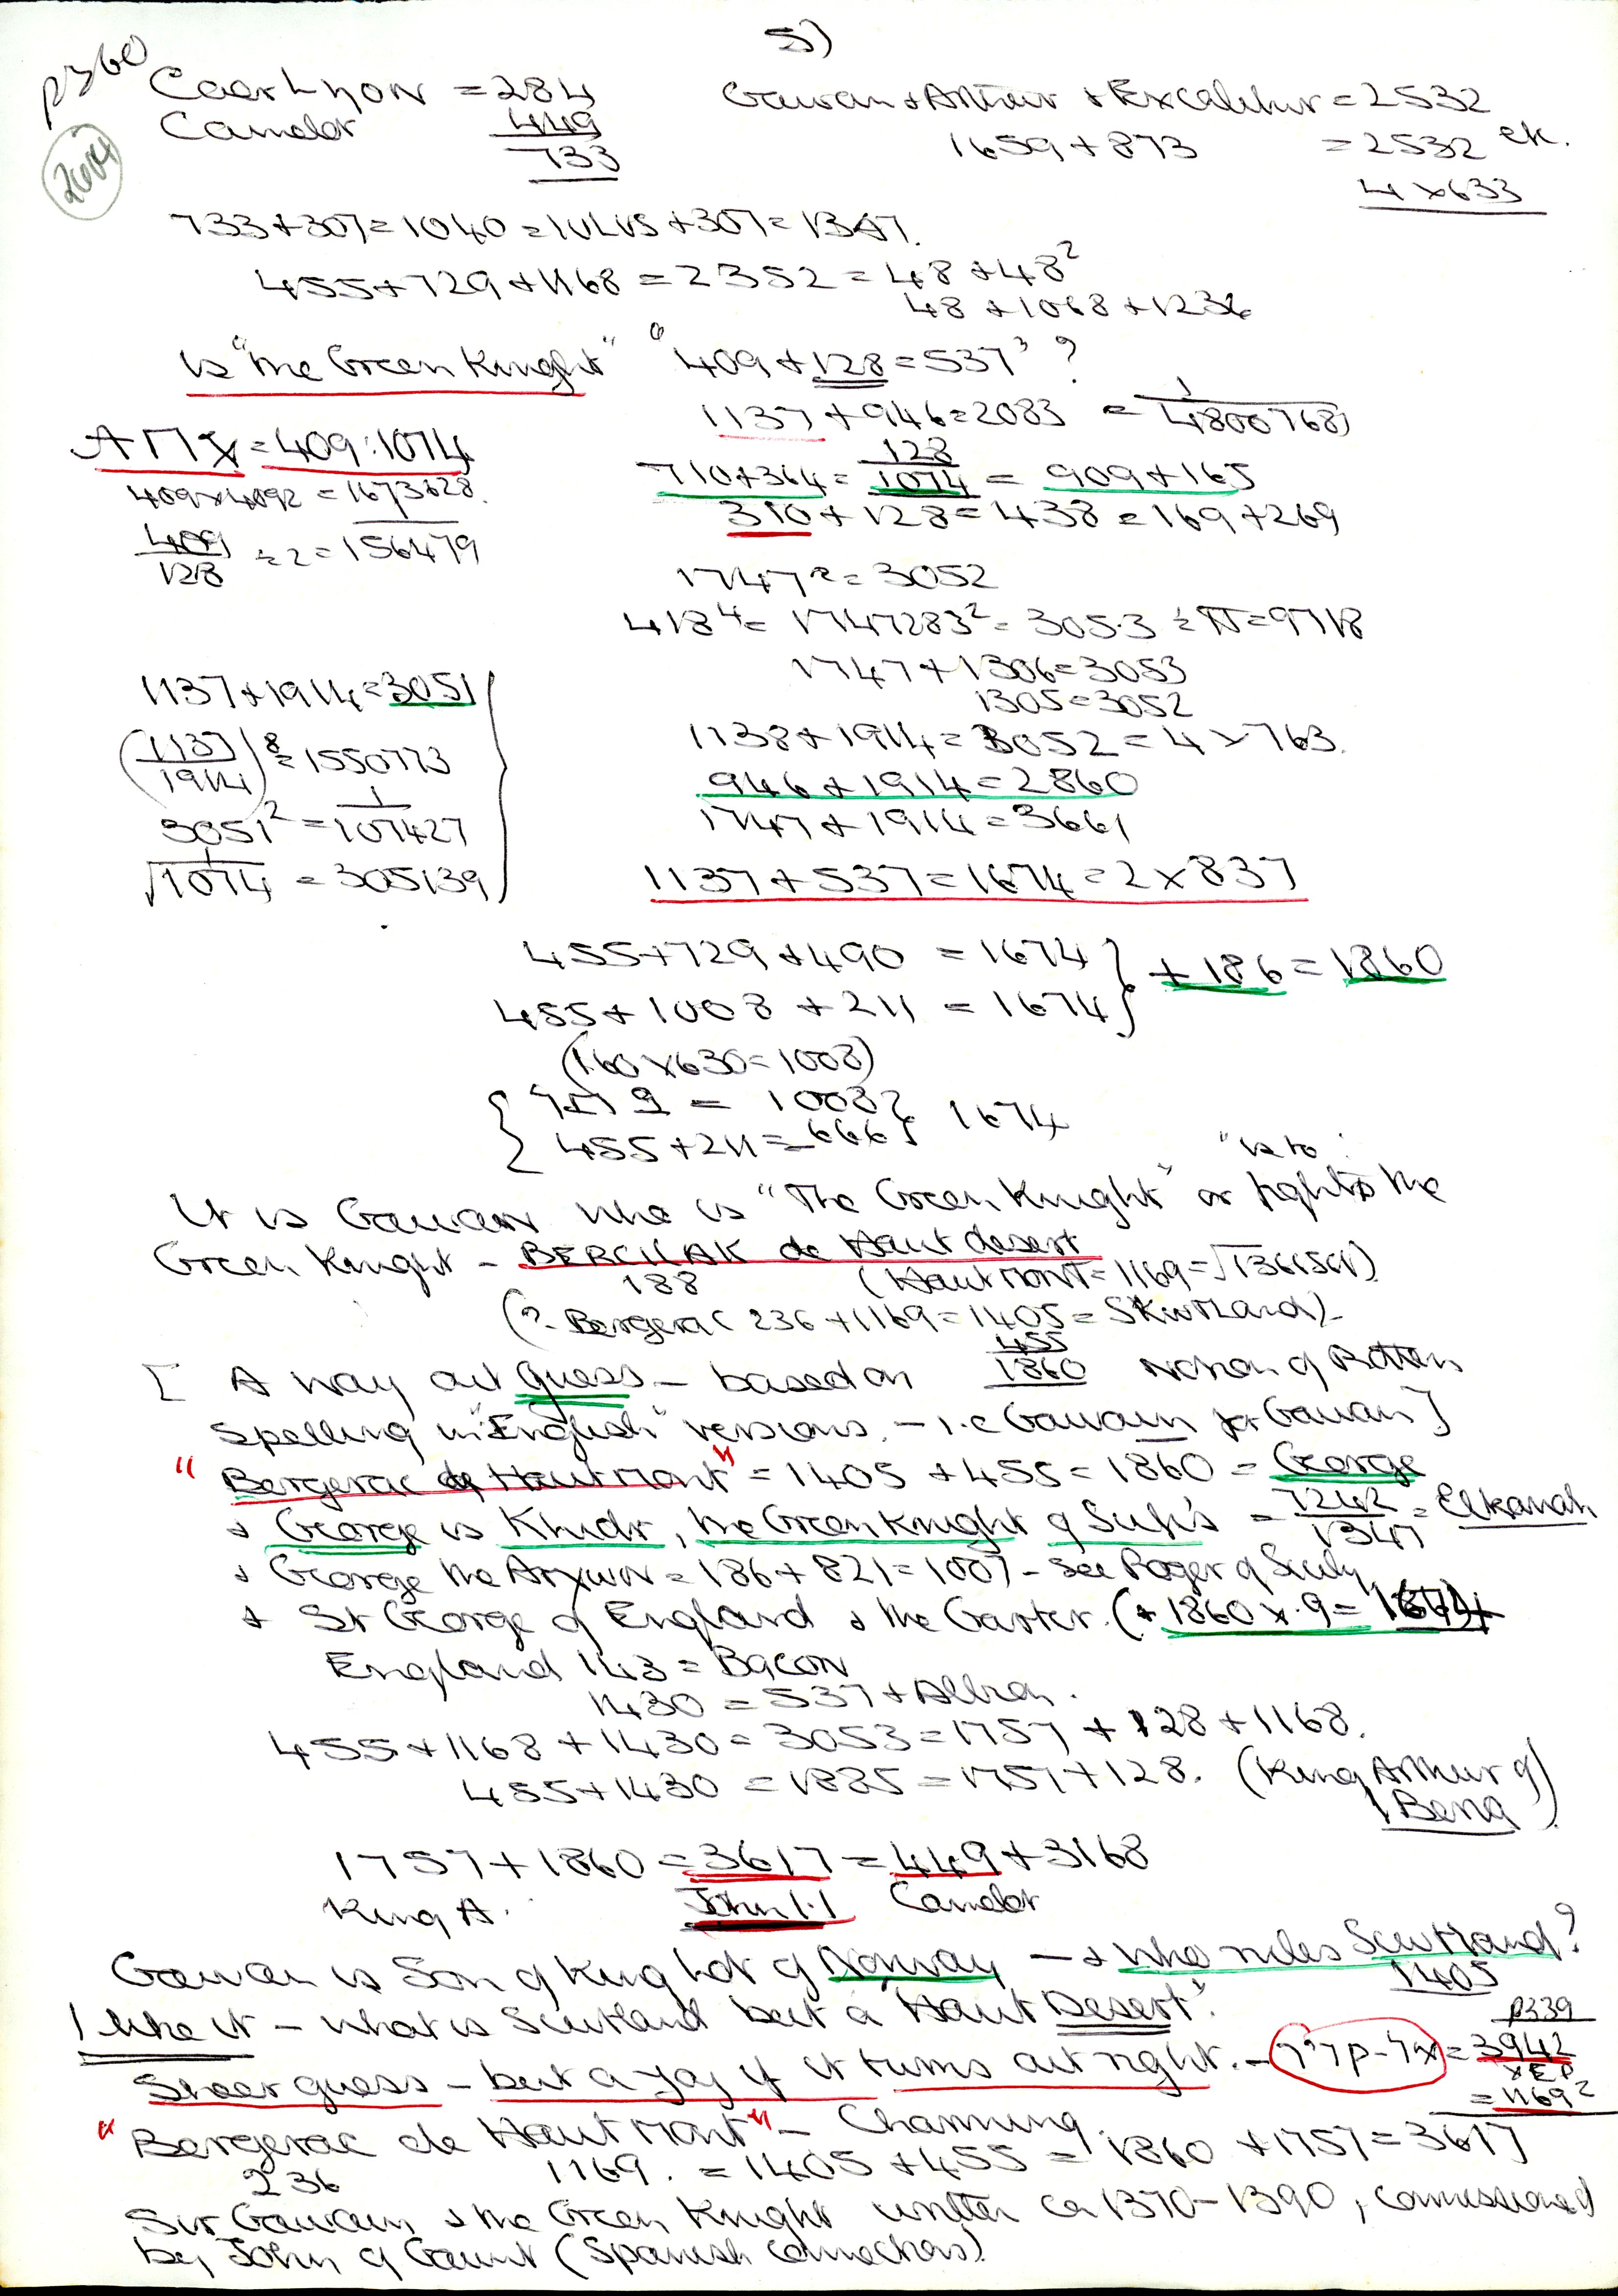 5)
p360
CaerLyon = 284
Camelot 449
733
Gawan + Arthur + Excalibur = 2532
1659 + 873 = 2532 ek.
4 x 633
733 + 307 = 1040 = + 307 = 1347.
455 + 729 + 1168 = 2352 = 48 + 48²
48 + 1068 + 1236
Is "The Green Knight" "409 + 128 = 537" ?
1137 + 946 = 2083 = 1/4800768)
= 409:1074
409 x 4092 = 1673628.
409/128 ÷ 2 = 156479
128
710 + 364 = 1074 = 909 + 165
310 + 128 = 438 = 169 + 269
1747² = 3052
418⁴ = 1747283² = 305.3 ÷ π = 9718
1747 + 1306 = 3053
1305 = 3052
1137 + 1914 = 3051
(1137/1914)⁸ = 1550773
3051² = 1/107427
√1/1074 = 305139
1138 + 1914 = 3052 = 4 x 763.
946 + 1914 = 2860
1747 + 1914 = 3661
1137 + 537 = 1674 = 2 x 837
455 + 729 + 490 = 1674 } + 186 = 1860
455 + 1008 + 211 = 1674 }
(160 x 630 = 1008)
= 1008 } 1674
455 + 211 = 666 }
"is to"
It is Gawain who is "The Green Knight" or fights the
Green Knight - BERCILAK de Haut desert
188 (Haut MONT = 1169 = √1366561)
(? Bergerac 236 + 1169 = 1405 = SKWTLand).
455
[ A way out guess - based on 1860 Notion of Rotten
Spelling in "English" versions. - i.e Gawain for Gawan ]
"Bergerac de Haut Mont" = 1405 + 455 = 1860 = George
+ George is Khidr, the Green Knight of Sufi's = 7242/1347 = Elkanah
+ George the = 186 + 821 = 1007 - see Roger of Sicily
+ St George of England & the Garter. (+ 1860 x .9 = 1674)+
England 143 = Bacon
1430 = 537 + Albion.
455 + 1168 + 1430 = 3053 = 1757 + 128 + 1168.
455 + 1430 = 1885 = 1757 + 128. (King Arthur of)
1757 + 1860 = 3617 = 449 + 3168
King A. John 1.1 Camelot
Gawan is Son of King Lot of Norway - & who rules Scotland?
1405
I like it - what is Scotland but a "Haut Desert".
p339
Sheer guess - but a joy if it turns out right. - = 3942
= 1169²
"Bergerac de Haut Mont" - Charming.
236 1169. = 1405 + 455 = 1860 + 1757 = 3617
Sir Gawain & the Green Knight written ca 1370-1390, comissioned
by John of Gaunt (Spanish connections).